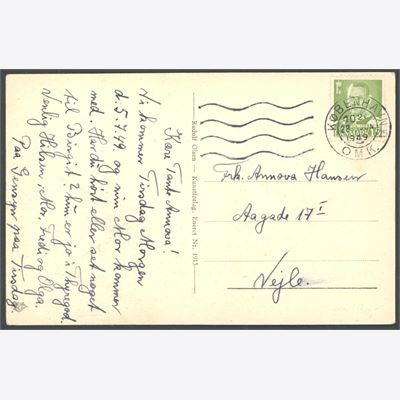 Kære Tante Annova!
Vi kommer Tirsdag Morgen
d. 5.7.49 og min Mor kommer
med. Har du hørt eller set noget
til Birgit? hun er jo i Thyregod.
Venlig Hilsen, Mor, Fredi og Olga.
Paa Gensyn paa Tirsdag.
Rudolf Olsen — Kunstforlag. Eneret Nr. 1915
KØBENHAVN
1949
OMK.
Frk. Annova Hansen
Aagade 17 I
Vejle.